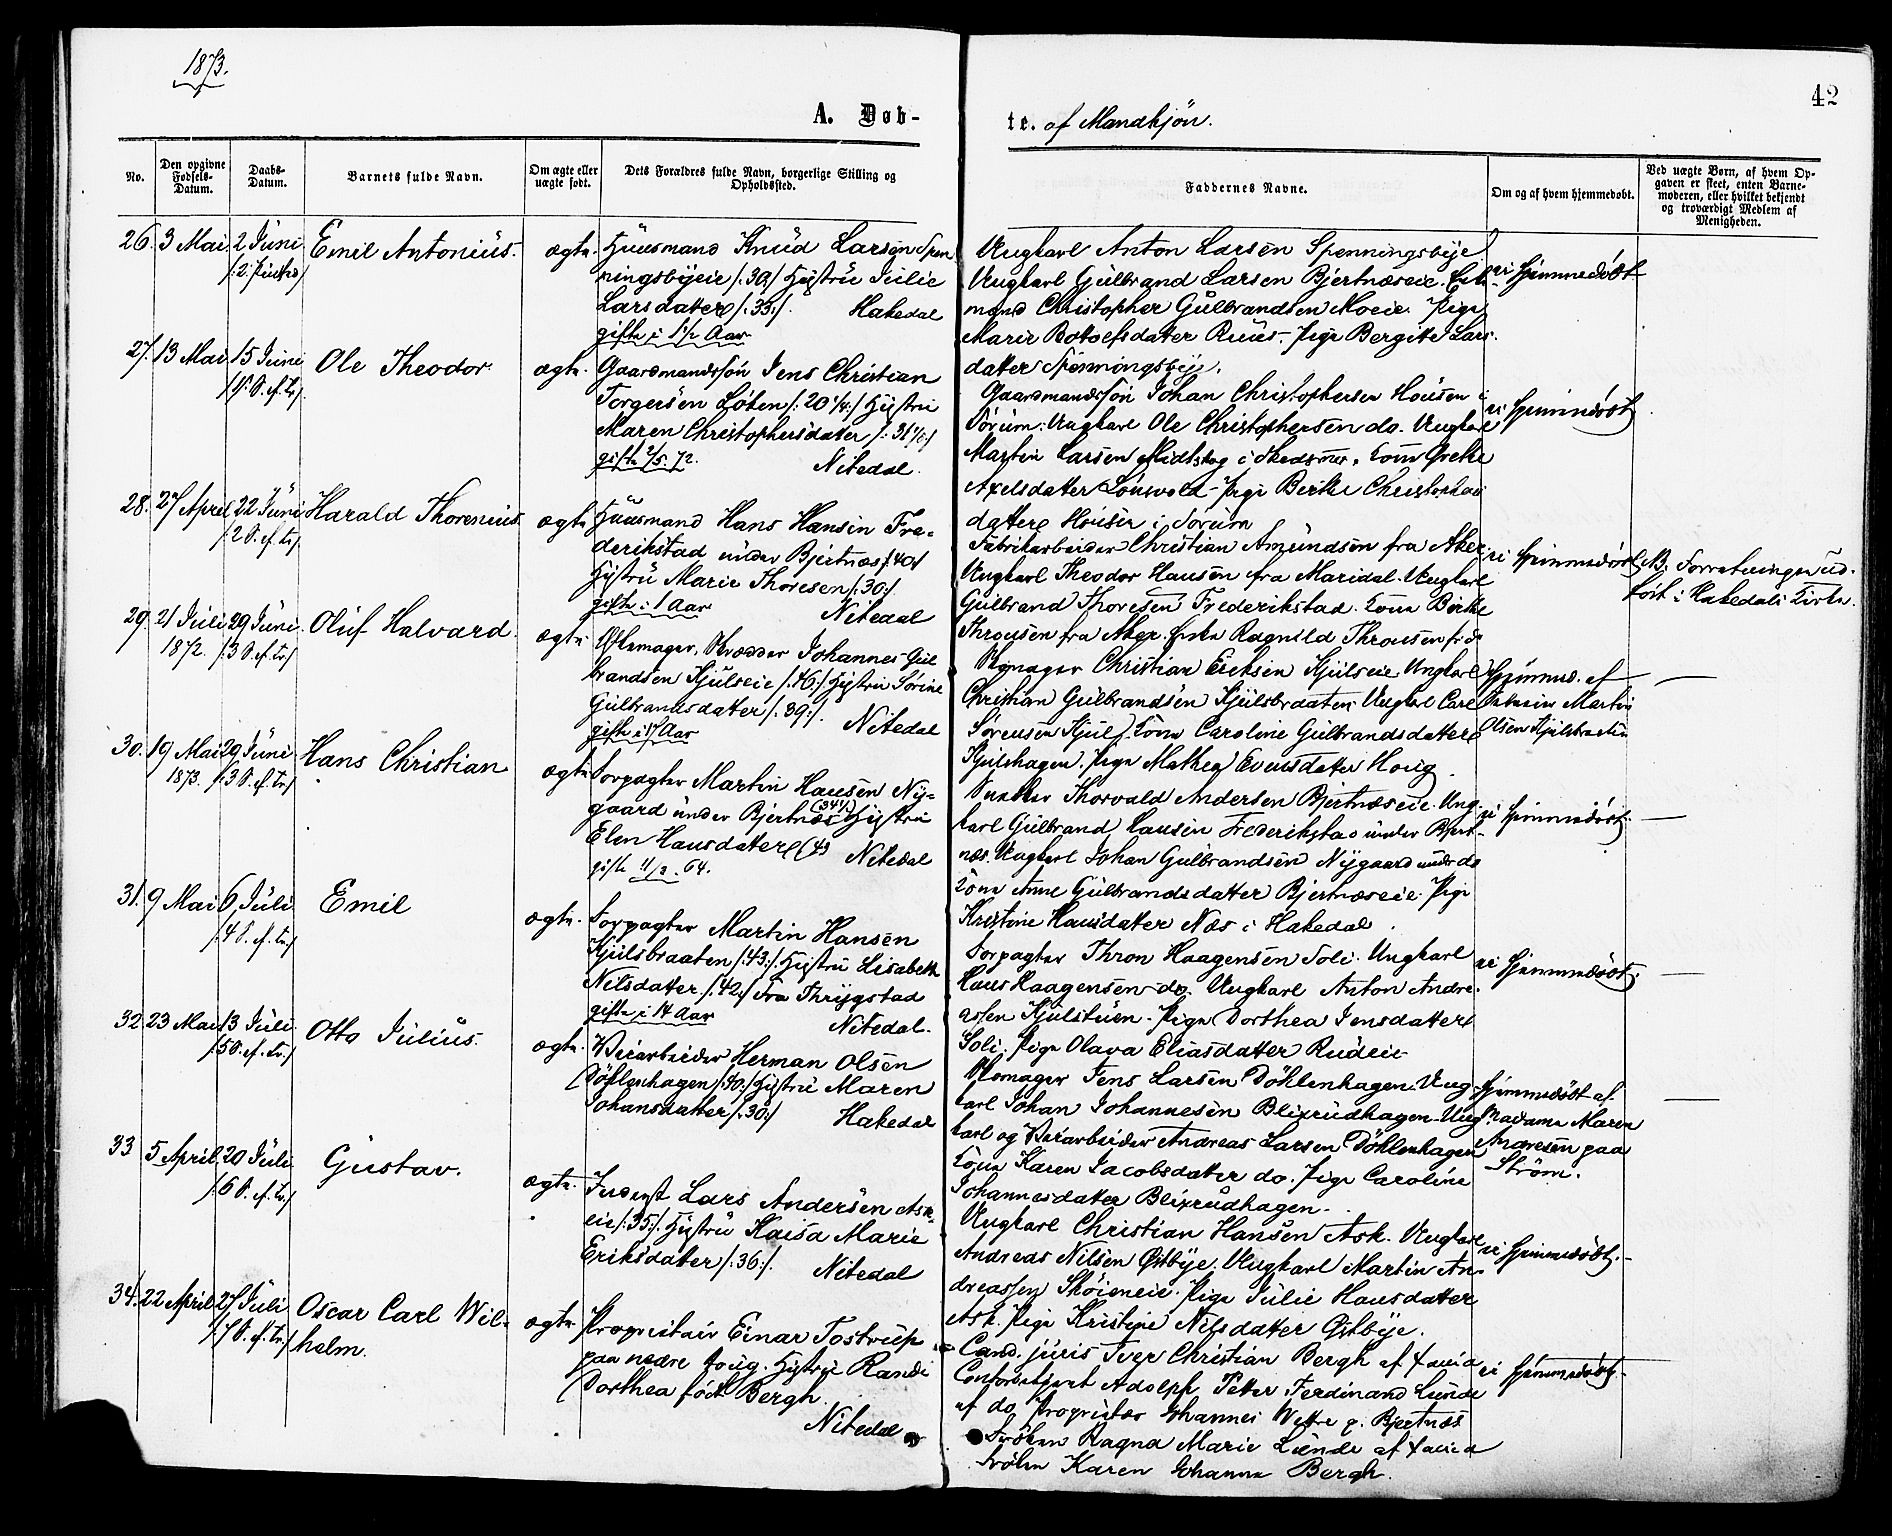 1873.
42
A. Døb-
te. af Mandkjön.
No.
Den opgivne Fødsels-Datum.
Daabs-Datum.
Barnets fulde Navn.
Om ægte eller uægte født.
Dets Forældres fulde Navn, borgerlige Stilling og Opholdssted.
Faddernes Navne.
Om og af hvem hjemmedøbt.
Ved uægte Børn, af hvem Opgaven er skeet, enten Barnemoderen, eller hvilket bekjendt og troværdigt Medlem af Menigheden.
26. 3 Mai 2 Juni Emil Antonius. ægte.
Huusmand Knud Larsen Spen
ningsbyeie /:30:/ Hustru Julie
Larsdatter /:33:/. Hakedal
gifte i 1½ Aar
Ungkarl Anton Larsen Spenningsbye.
Ungkarl Gulbrand Larsen Bjertnæseie. Enke
mand Christopher Gulbrandsen Moeie. Pige
Marie Rottolfsdater Ruus. Pige Bergitte Lars
datter Spenningsbye.
ei hjemmedöbt
27. 13 Mai 15 Juni Ole Theodor. ægte.
/:1 S. ef. Tr:/
Gaardmandssön Jens Christian
Torgersen Løken /:20¼:/ Hustru
Maren Christophersdatter /:31
gifte 2/5. 72. Nitedal.
Gaardmandssön Johan Christophersen Housen i
Sörum. Ungkarl Ole Christophersen do. Ungkarl
Martin Larsen Midtskog i Skedsmo. Kone Grethe
Axelsdatter Lönvold. Pige Berthe Christophers
datter Housen i Sörum
ei hjemmedöbt
28. 27 April 22 Juni Harald Thorenius. ægte
/:2 S. ef. Tr:/
Huusmand Hans Hansen Fre-
derikstad under Bjertnæs /:40:/
Hustru Marie Thoresen /:30:/
gifte i 1 Aar Nitedal
Fabrikarbeider Christian Amundsen fra Aker
Ungkarl Theodor Hansen fra Maridal. Ungkarl
Gulbrand Thoresen Frederikstad. Kone Berthe
Thronsen fra Aker. Enke Ragnild Thronsen
ei hjemmedöbt
NB. Forretningen ud-
fört i Hakedals Kirke.
29. 21 Juli 29 Juni Oluf Halvard. ægte
1872. /:3 S. ef. Tr:/
Skrædder Johannes Gul
brandsen Kjulseie /:46:/ Hustru Sörine
Gulbrandsdatter /:39:/.
gifte i 17 Aar Nitedal
Skomager Christian Eriksen Kjulseie. Ungkarl
Christian Gulbrandsen Kjulsbraaten. Ungkarl Carl
Sörensen Kjul. Kone Caroline Gulbrandsdatter
Kjulshagen. Pige Mathea Evensdatter Houg.
Hjemmed. af
Martin
Olsen Kjulsbraaten
30. 19 Mai 29 Juni Hans Christian ægte
1873. /:3 S. ef. Tr:/
Forpagter Martin Hansen Ny-
gaard under Bjertnæs (34½) Hustru
Elen Hansdatter (43 Nitedal
gifte 11/2. 64.
Snedker Thorvald Andersen Bjertnæseie. Ung-
karl Gulbrand Hansen Frederikstad under Bjert-
næs. Ungkarl Johan Gulbrandsen Nygaard under do
Kone Anne Gulbrandsdatter Bjertnæseie. Pige
Kristine Hansdatter Næs i Hakedal.
ei hjemmedöbt.
31. 9 Mai 6 Juli Emil ægte.
/:4 S. ef. Tr:/
Forpagter Martin Hansen
Kjulsbraaten /:43:/ Hustru Lisabeth
Nilsdatter /:42:/ Fra Thrygstad
gifte i 14 Aar Nitedal.
Forpagter Thron Haagensen Soli. Ungkarl
Hans Haagensen do. Ungkarl Anton Andre-
assen Kjulstuen. Pige Dorthea Jensdatter
Soli. Pige Olava Eliasdatter Rudeie
ei hjemmedöbt.
32. 23 Mai 13 Juli Otto Julius. ægte.
/:5 S. ef. Tr:/
Veiarbeider Herman Olsen
Döhlenhagen /:30:/ Hustru Maren
Johansdatter /:30:/ Hakedal
Skomager Jens Larsen Döhlenhagen. Ung-
karl Johan Johannesen Blixrudhagen. Ung
karl og Veiarbeider Andreas Larsen Döhlenhagen
Kone Karen Jacobsdatter do. Pige Caroline
Johannesdatter Blixrudhagen.
Hjemmedöbt af
Madame Maren
Andresen paa
Ström.
33 5 April 20 Juli Gustav. ægte.
/:6 S. ef. Tr:/
Inderst Lars Andersen Ask-
eie /:35:/. Hustru Kaisa Marie
Eriksdatter /:36:/. Nitedal
Ungkarl Christian Hansen Ask. Ungkarl
Andreas Nilsen Østbye. Ungkarl Martin An-
dreassen Skøieneie. Pige Julie Hansdatter
Ask. Pige Kristine Nilsdatter Østbye.
ei hjemmedöbt.
34. 22 April 27 Juli Oscar Carl Wil- ægte.
/:7 S. ef. Tr:/ helm.
Proprietair Einar Tostrup
paa nedre Houg. Hustru Randi
Dorthea född Bergh.
Nitedal
Cand. juris Iver Christian Bergh af Xania
Contorbetjent Adolph Petter Ferdinand Lunde
af do. Proprietær Johannes Wette p. Bjertnæs
Fröken Ragna Marie Lunde af Xania
Fröken Karen Johanne Bergh.
ei hjemmedöbt.